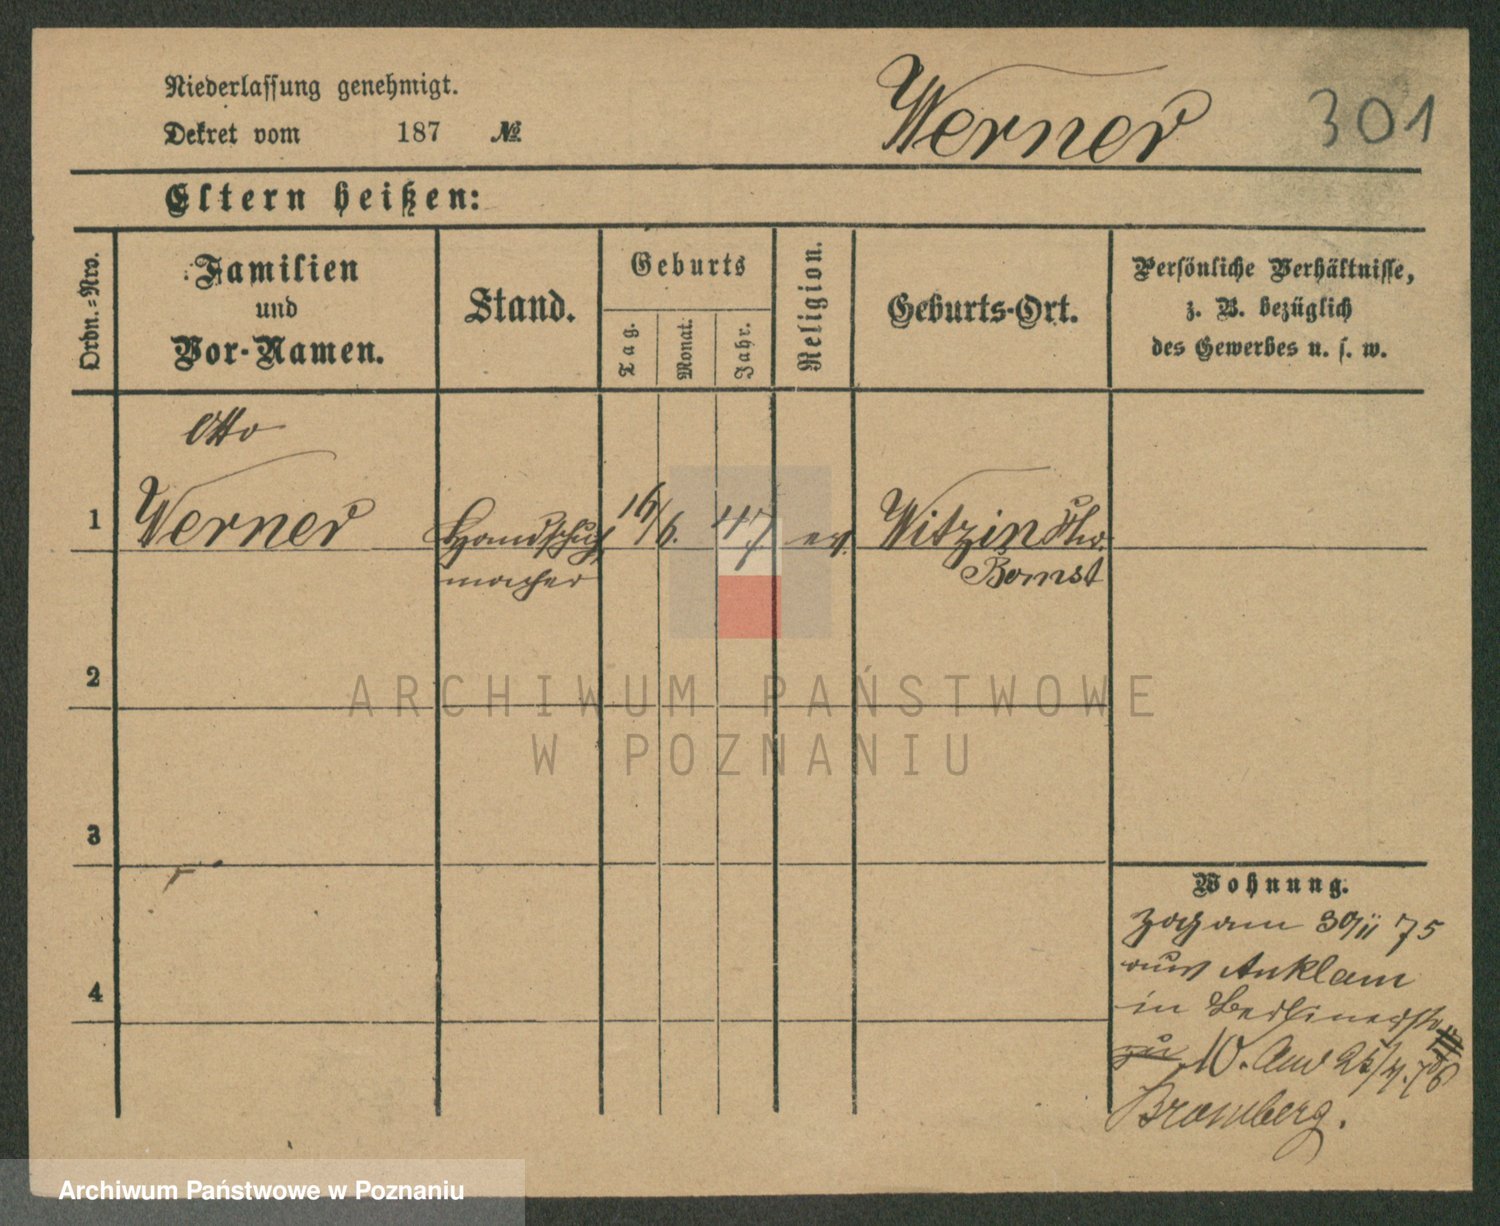 Niederlassung genehmigt.
Dekret vom 187 №
Werner
301
Eltern heißen:
Ordn.=Nro.
Familien
und
Vor-Namen.
Stand.
Geburts
Tag.
Monat.
Jahr.
Religion.
Geburts-Ort.
Persönliche Verhältnisse,
z. B. bezüglich
des Gewerbes u. s. w.
Otto
1 Werner Handschuh 16/6. 47. ev. Witzin
macher Bomst
2
3
4
Wohnung.
zog am 30/11 75
aus Anklam
in Berlinerstr
10.
Bromberg.
ARCHIWUM PAŃSTWOWE
W POZNANIU
Archiwum Państwowe w Poznaniu